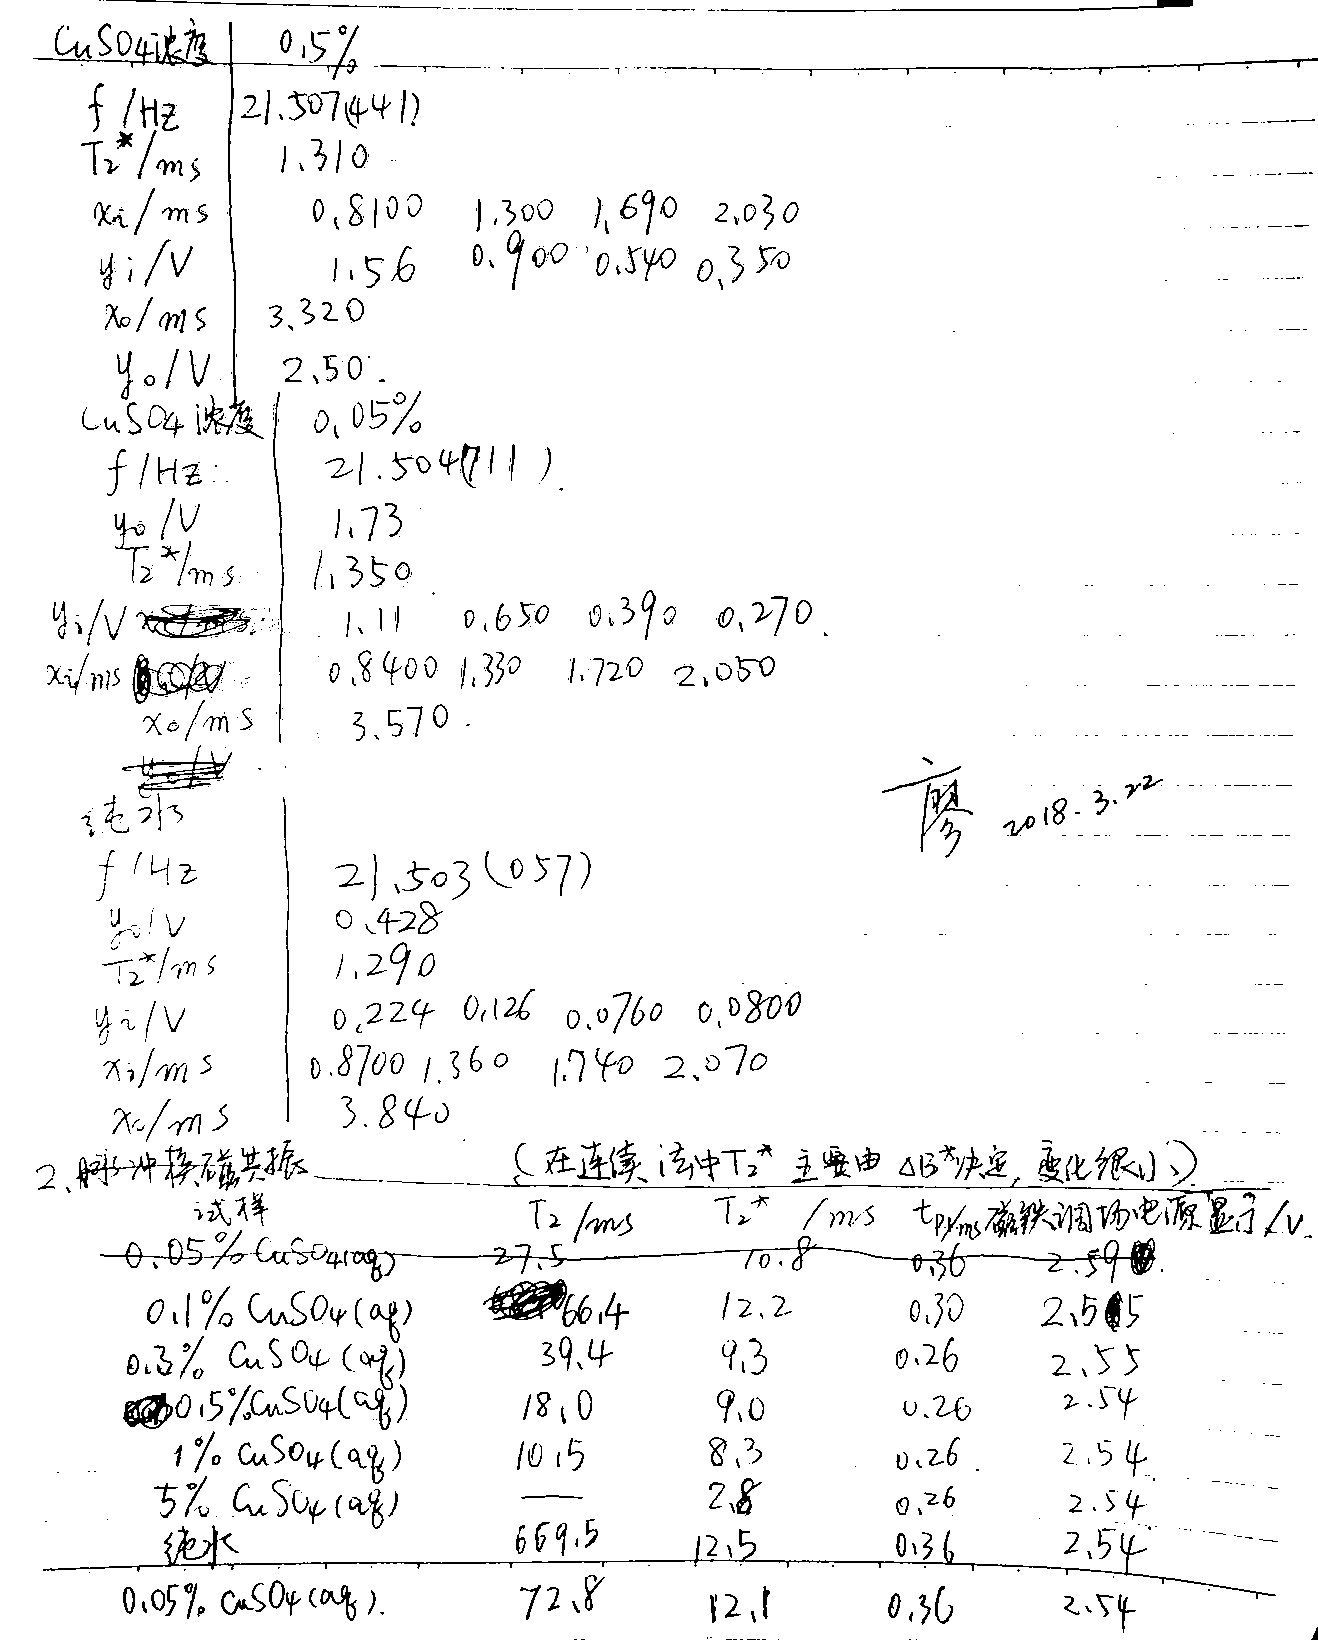 CuSO4浓度 0.5%
f/Hz 21.507(441)
T2*/ms 1.310
xi/ms 0.8100 1.300 1.690 2.030
yi/V 1.56 0.900 0.540 0.350
x0/ms 3.320
y0/V 2.50
CuSO4浓度 0.05%
f/Hz 21.504(711)
y0/V 1.73
T2*/ms 1.350
yi/V 1.11 0.650 0.390 0.270
xi/ms 0.8400 1.330 1.720 2.050
x0/ms 3.570
廖 2018.3.22
纯水
f/Hz 21.503(057)
y0/V 0.428
T2*/ms 1.290
yi/V 0.224 0.126 0.0760 0.0800
xi/ms 0.8700 1.360 1.740 2.070
x0/ms 3.840
2.脉冲核磁共振 (在连续法中T2*主要由ΔB*决定,变化很小)
试样 T2/ms T2*/ms tp/ms 磁铁调场电源显示/V
0.05% CuSO4(aq) 27.5 10.8 0.36 2.59
0.1% CuSO4(aq) 66.4 12.2 0.30 2.55
0.3% CuSO4(aq) 39.4 9.3 0.26 2.55
0.5% CuSO4(aq) 18.0 9.0 0.26 2.54
1% CuSO4(aq) 10.5 8.3 0.26 2.54
5% CuSO4(aq) — 2.8 0.26 2.54
纯水 669.5 12.5 0.36 2.54
0.05% CuSO4(aq) 72.8 12.1 0.36 2.54